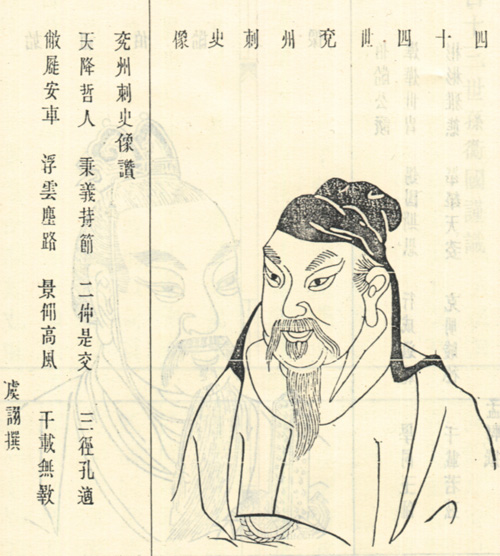 四十四世兖州刺史像
兖州刺史像讚
天降哲人　秉義持節　二仲是交　三徑孔適
敝屣安車　浮雲塵路　景仰高風　千載無斁
虞詡撰